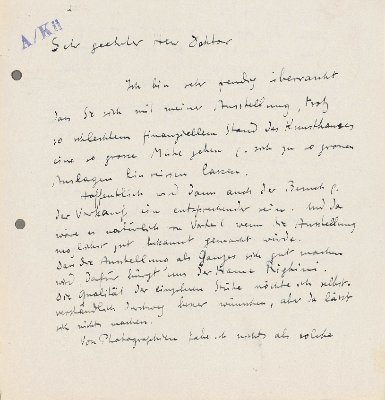 A/Kü
Sehr geehrter Herr Doktor
Ich bin sehr freudig überrascht
dass Sie sich mit meiner Ausstellung, trotz
so schlechtem finanziellem Stand des Kunsthauses
eine so grosse Mühe geben u. sich zu so grossen
Auslagen hinreissen lassen.
Hoffentlich wird dann auch der Besuch u.
der Verkauf ein entsprechender sein. Und da
wäre es natürlich von Vorteil wenn die Ausstellung
gut bekannt gemacht würde.
Dass die Ausstellung als Ganzes sich gut machen
wird dafür bürgt uns der Name Righini.
Die Qualität der einzelnen Stücke möchte ich selbst-
verständlich durchweg besser wünschen, aber da lässt
sich nichts machen.
Von Photographien habe ich nichts als solche